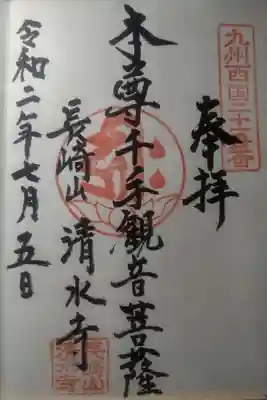 九州西国二十五番
奉拝
本尊千手觀音菩薩
長崎山清水寺
長崎山
清水寺
令和二年七月五日